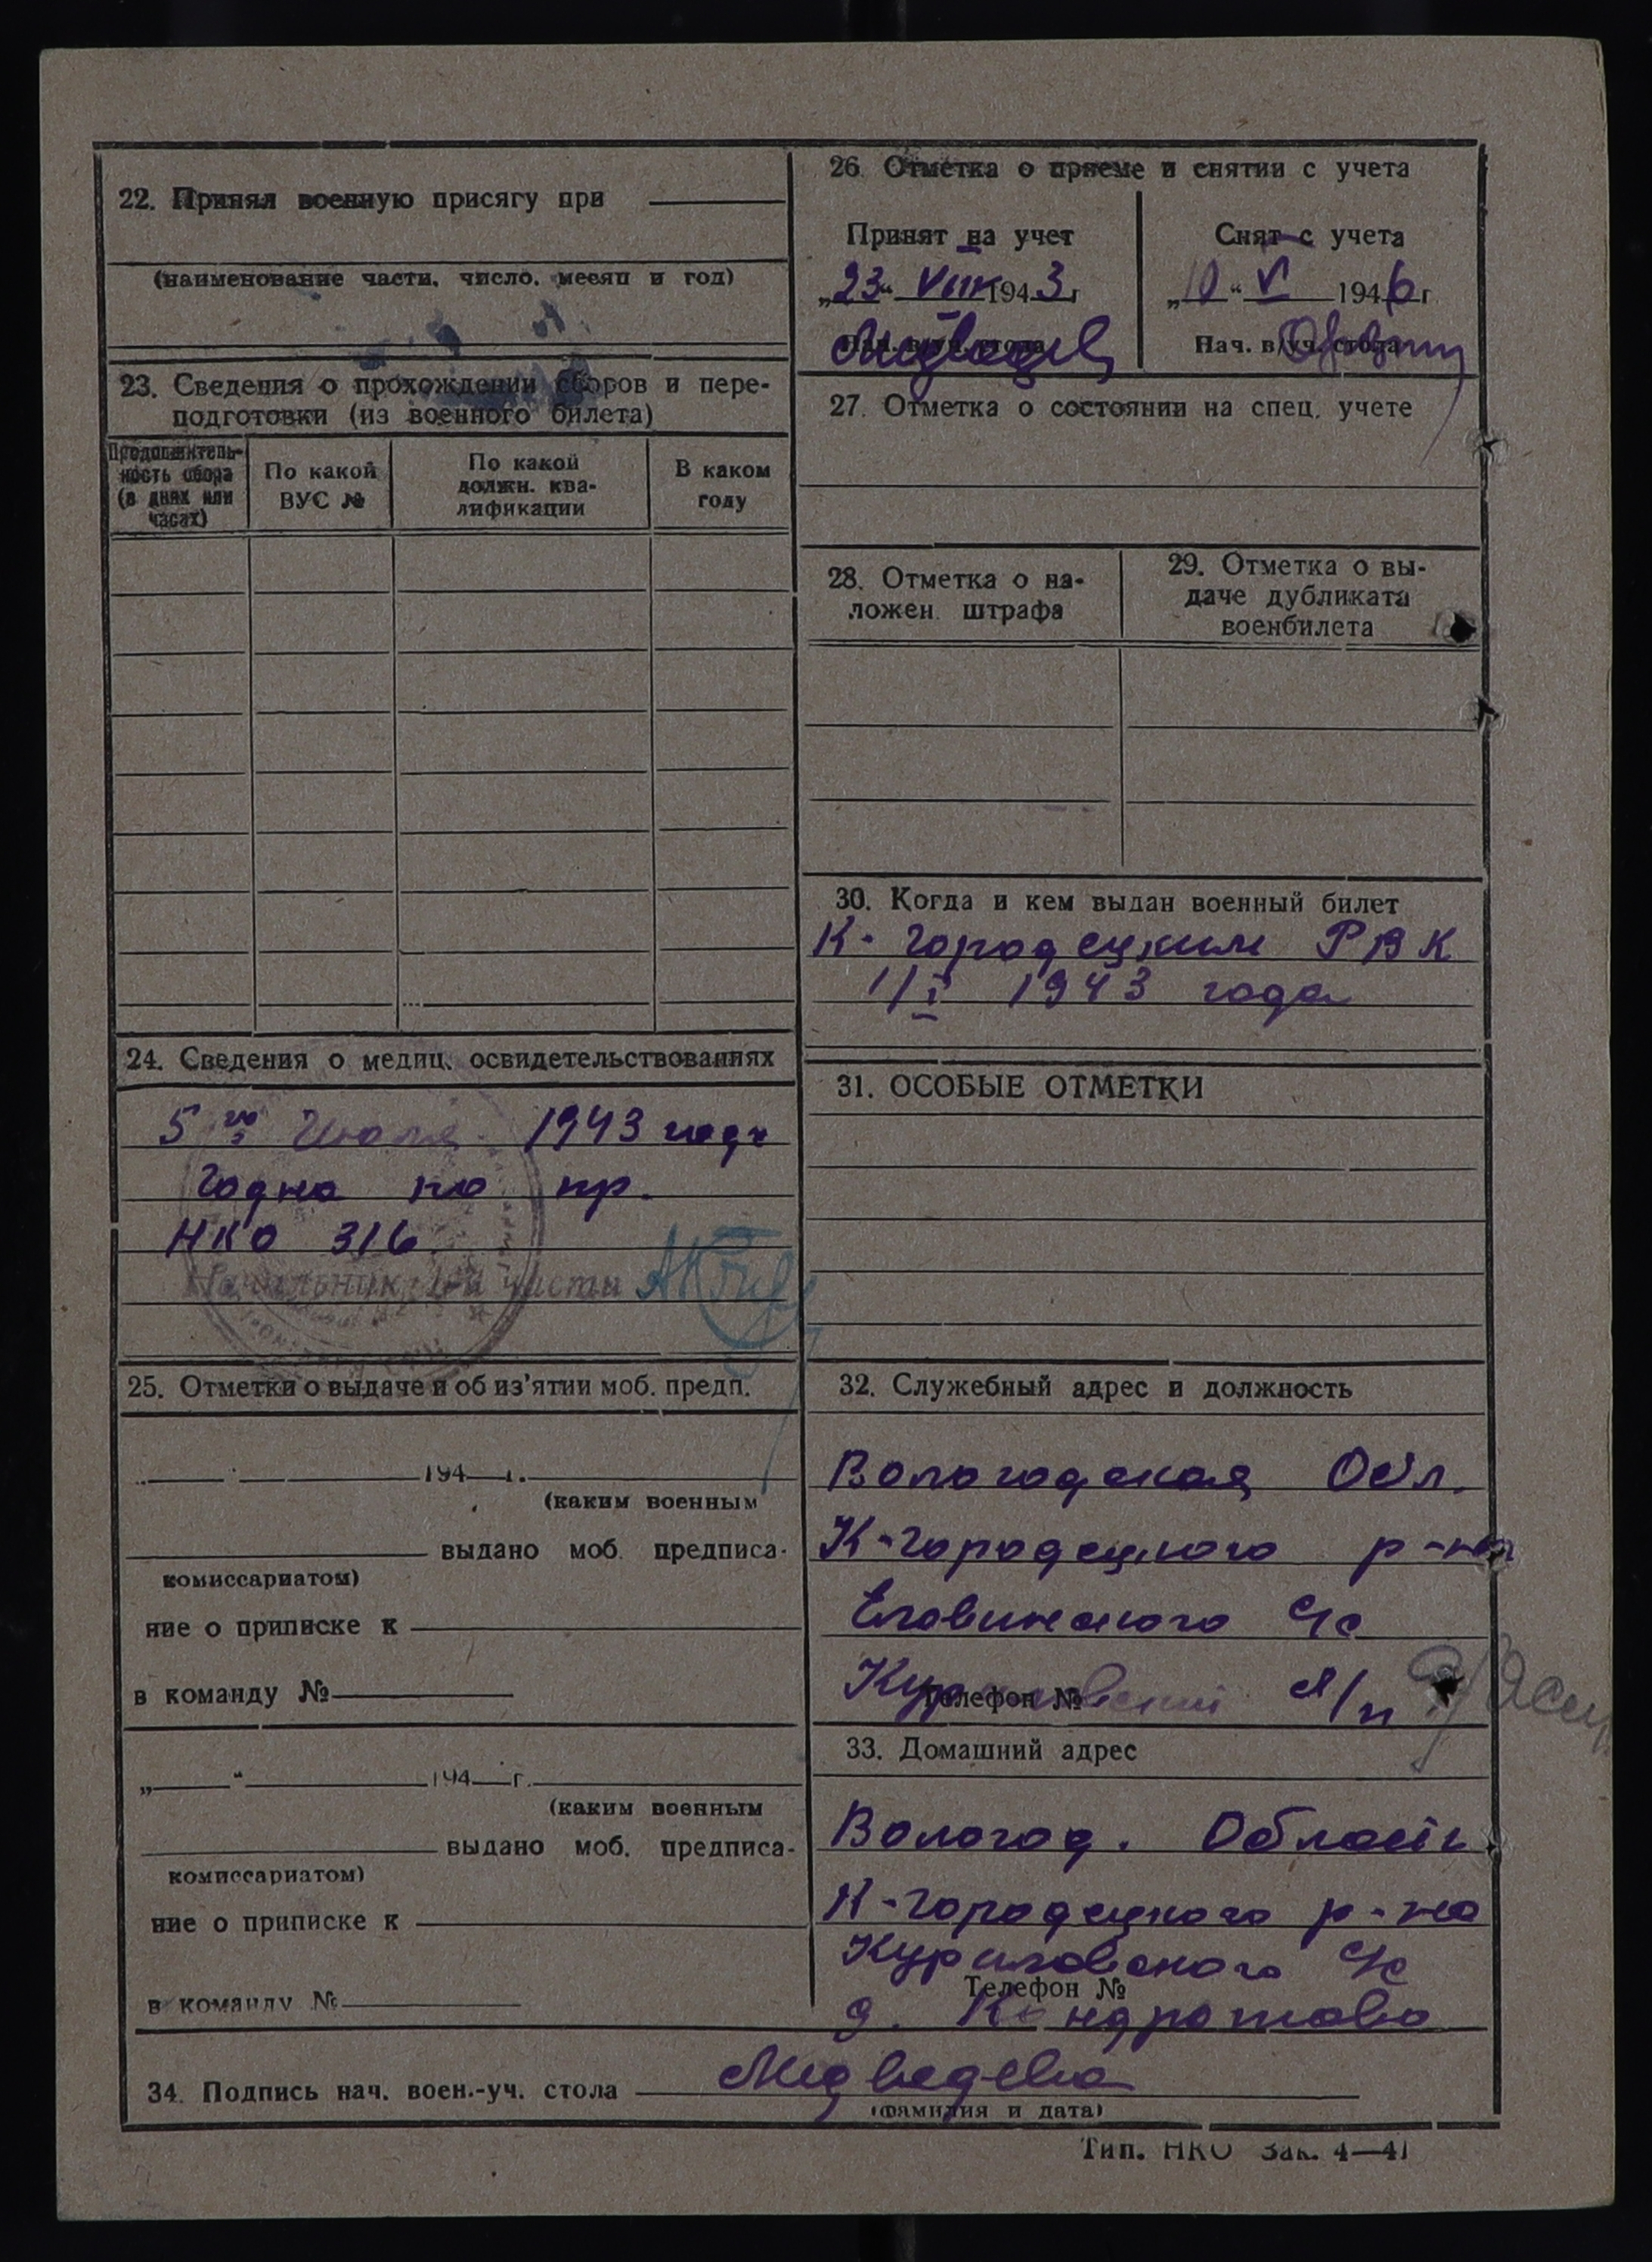 22. Принял военную присягу при
(наименование части, число, месяц и год)
23. Сведения о прохождении сборов и пере-
подготовки (из военного билета)
Продолжитель-
ность сбора
(в днях или
часах)
По какой
ВУС №
По какой
должн. ква-
лификации
В каком
году
24. Сведения о медиц. освидетельствованиях
5го Июля 1943 года
Годна по пр.
НКО 316
Начальник части
25. Отметки о выдаче и об из'ятии моб. предп.
194 г.
(каким военным
выдано моб. предписа-
комиссариатом)
ние о приписке к
в команду №
„ “ 194 г.
(каким военным
выдано моб. предписа-
комиссариатом)
ние о приписке к
в команду №
26. Отметка о приеме и снятии с учета
Принят на учет
„23“ VIII 1943 г
Нач. в/уч. стола
Снят с учета
„10“ V 1946 г
Нач. в/уч. стола
27. Отметка о состоянии на спец. учете
28. Отметка о на-
ложен. штрафа
29. Отметка о вы-
даче дубликата
военбилета
30. Когда и кем выдан военный билет
К-городецким РВК
1/I 1943 года
31. ОСОБЫЕ ОТМЕТКИ
32. Служебный адрес и должность
Вологодская Обл.
К-городецкого р-на
Еловинского с/с
Телефон №
33. Домашний адрес
Вологод. Область
К-городецкого р-на
Куриловского с/с
Телефон №
д. Кондратово
34. Подпись нач. воен.-уч. стола Медведева
(фамилия и дата)
Тип. НКО Зак. 4—41